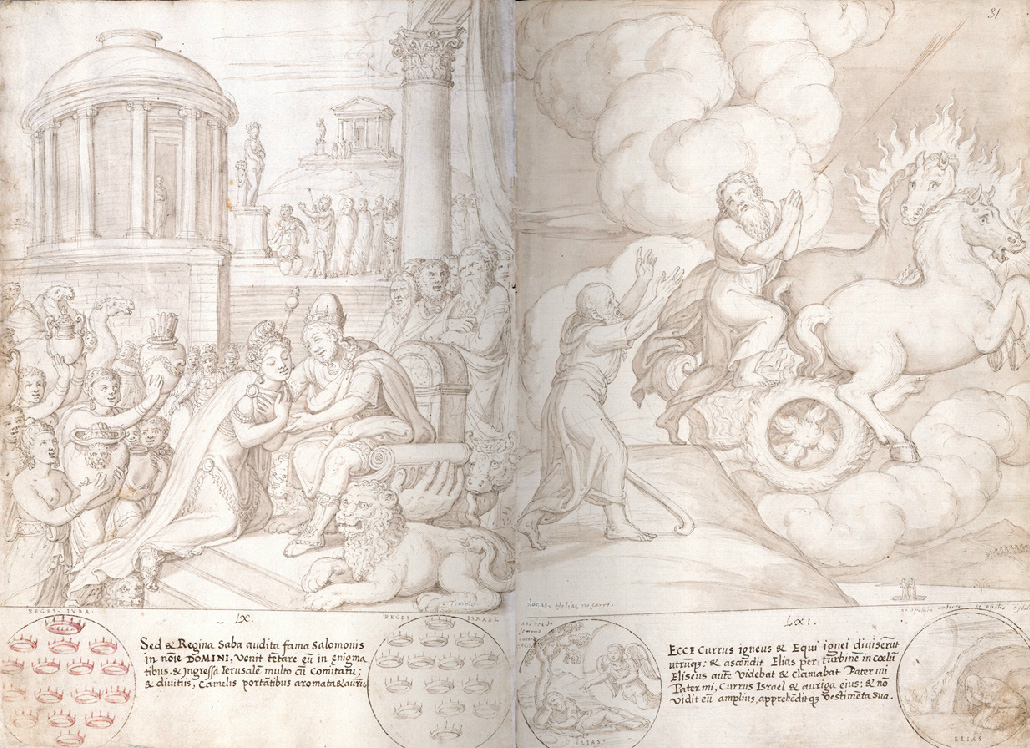 31
REGES IUDA.
.LX.
REGES ISRAEL
Sed & Regina Saba audita fama Salomonis
in noīe DOMINI, Venit tētare eū in Enigma
tibus. & Ingressa Ierusalē multo cū Comitatu;
& divitiis, Camelis portātibus aromata & aurū,
.LXI.
ECCE Currus igneus & Equi ignei diuiserūt
utrūqs: & ascēdit Elias per turbinē in coelū
Eliseus autē Videbat & clamabat Pater mi
Pater mi, Currus Israel & auriga eius: & nō
vidit eū amplius, apprehēditqs Vestimēta sua.
ELIAS.
ELIAS